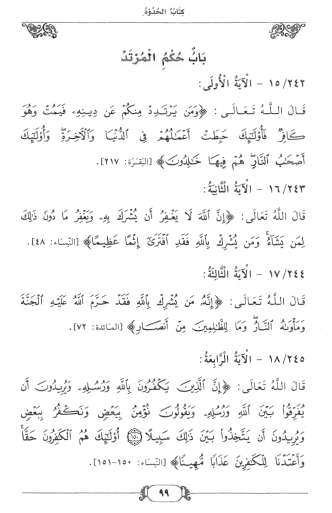 كِتَابُ الحُدُودِ
بَابُ حُكْمِ الْمُرْتَدِّ
١٥/٢٤٢ - الآيَةُ الْأُولَى:
قَالَ اللَّهُ تَعَالَى: ﴿وَمَن يَرْتَدِدْ مِنكُمْ عَن دِينِهِ فَيَمُتْ وَهُوَ
كَافِرٌ فَأُولَٰئِكَ حَبِطَتْ أَعْمَٰلُهُمْ فِي الدُّنْيَا وَالْآخِرَةِ وَأُولَٰئِكَ
أَصْحَٰبُ النَّارِ هُمْ فِيهَا خَٰلِدُونَ﴾ [البَقَرَة: ٢١٧].
١٦/٢٤٣ - الآيَةُ الثَّانِيَةُ:
قَالَ اللَّهُ تَعَالَى: ﴿إِنَّ اللَّهَ لَا يَغْفِرُ أَن يُشْرَكَ بِهِ وَيَغْفِرُ مَا دُونَ ذَٰلِكَ
لِمَن يَشَآءُ وَمَن يُشْرِكْ بِاللَّهِ فَقَدِ افْتَرَىٰٓ إِثْمًا عَظِيمًا﴾ [النِّسَاء: ٤٨].
١٧/٢٤٤ - الآيَةُ الثَّالِثَةُ:
قَالَ اللَّهُ تَعَالَى: ﴿إِنَّهُ مَن يُشْرِكْ بِاللَّهِ فَقَدْ حَرَّمَ اللَّهُ عَلَيْهِ الْجَنَّةَ
وَمَأْوَىٰهُ النَّارُ وَمَا لِلظَّٰلِمِينَ مِنْ أَنصَارٍ﴾ [المَائدة: ٧٢].
١٨/٢٤٥ - الآيَةُ الرَّابِعَةُ:
قَالَ اللَّهُ تَعَالَى: ﴿إِنَّ الَّذِينَ يَكْفُرُونَ بِاللَّهِ وَرُسُلِهِ وَيُرِيدُونَ أَن
يُفَرِّقُوا بَيْنَ اللَّهِ وَرُسُلِهِ وَيَقُولُونَ نُؤْمِنُ بِبَعْضٍ وَنَكْفُرُ بِبَعْضٍ
وَيُرِيدُونَ أَن يَتَّخِذُوا بَيْنَ ذَٰلِكَ سَبِيلًا ١٥٠ أُولَٰئِكَ هُمُ الْكَٰفِرُونَ حَقًّا
وَأَعْتَدْنَا لِلْكَٰفِرِينَ عَذَابًا مُّهِينًا﴾ [النِّسَاء: ١٥٠-١٥١].
٩٩